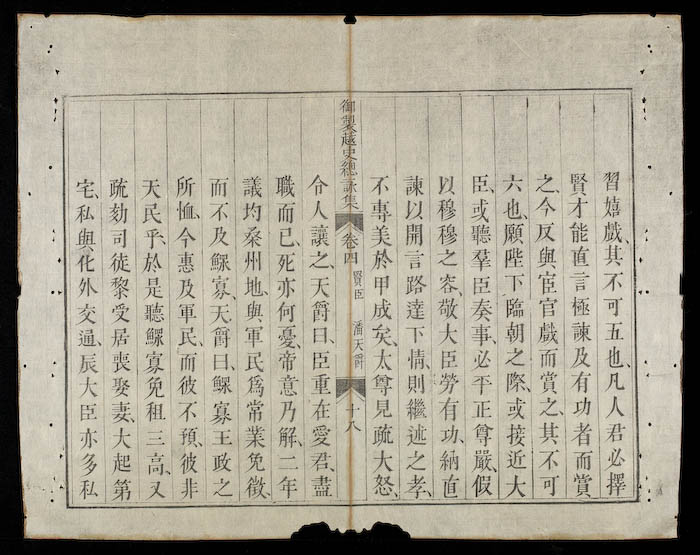 習嬉戲、其不可五也、凡人君必擇
賢才能直言極諫及有功者而賞
之、今反與宦官戲而賞之、其不可
六也、願陛下臨朝之際、或接近大
臣、或聽羣臣奏事、必平正尊嚴、假
以穆穆之容、敬大臣勞有功、納直
諫以開言路達下情、則繼述之孝、
不專美於甲成矣、太尊見疏大怒、
御製越史總詠集 卷四 賢臣 潘天爵 十八
令人讓之、天爵曰、臣重在愛君、盡
職而已、死亦何憂、帝意乃解、二年
議均桑州地、與軍民爲常業免徵、
而不及鰥寡、天爵曰、鰥寡王政之
所恤、今惠及軍民、而彼不預、彼非
天民乎、於是聽鰥寡免租三高、又
疏劾司徒黎受居喪娶妻、大起第
宅、私與化外交通、辰大臣亦多私